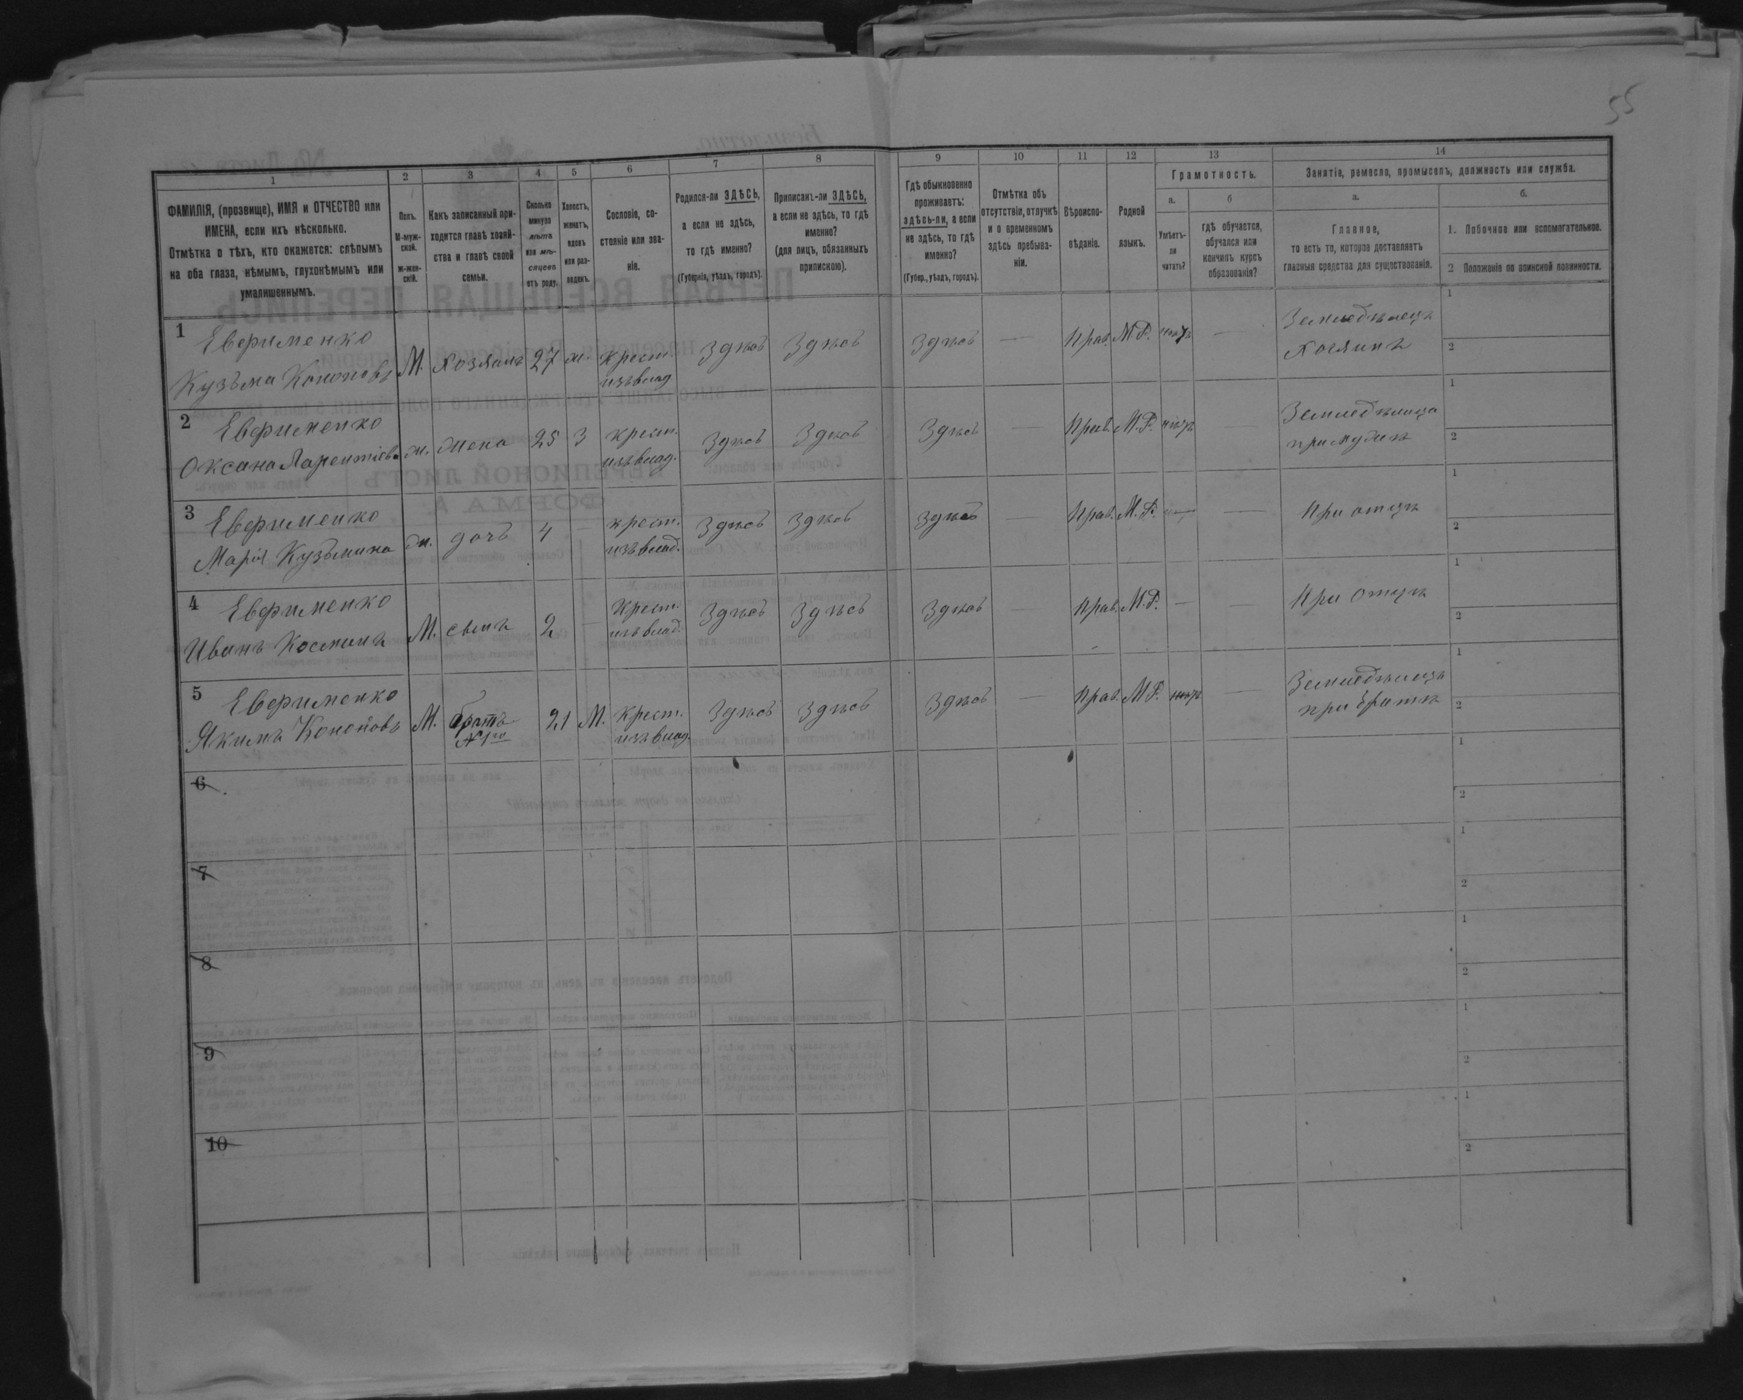 55
1 2 3 4 5 6 7 8 9 10 11 12 13 14
ФАМИЛІЯ, (прозвище), ИМЯ и ОТЧЕСТВО или ИМЕНА, если ихъ нѣсколько.
Отмѣтка о тѣхъ, кто окажется: слѣпымъ на оба глаза, нѣмымъ, глухонѣмымъ или умалишеннымъ.
Полъ.
М-муж-
ской.
ж-жен-
скій.
Какъ записанный при-
ходится главѣ хозяй-
ства и главѣ своей
семьи.
Сколько
минуло
лѣтъ
или мѣ-
сяцевъ
отъ роду.
Холостъ,
женатъ,
вдовъ
или раз-
веденъ.
Сословіе, со-
стояніе или зва-
ніе.
Родился-ли ЗДѢСЬ,
а если не здѣсь,
то гдѣ именно?
(Губернія, уѣздъ, городъ).
Приписанъ-ли ЗДѢСЬ,
а если не здѣсь, то гдѣ
именно?
(для лицъ, обязанныхъ
припискою).
Гдѣ обыкновенно
проживаетъ:
здѣсь-ли, а если
не здѣсь, то гдѣ
именно?
(Губер., уѣздъ, городъ).
Отмѣтка объ
отсутствіи, отлучкѣ
и о временномъ
здѣсь пребыва-
ніи.
Вѣроиспо-
вѣданіе.
Родной
языкъ.
Грамотность.
а.
Умѣетъ-
ли
читать?
б
гдѣ обучается,
обучался или
кончилъ курсъ
образованія?
Занятія, ремесло, промыселъ, должность или служба.
а.
Главное,
то есть то, которое доставляетъ
главныя средства для существованія.
б.
1. Побочное или вспомогательное.
2 Положеніе по воинской повинности.
1 Евфименко
Кузьма Кононовъ М. хозяинъ 27 ж. крест. Здѣсь Здѣсь Здѣсь — Прав. М.Р. нѣтъ — Земледѣлецъ 1
изъ влад. Хозяинъ 2
2 Евфименко
Оксана Ларентіева ж. жена 25 З крест. Здѣсь Здѣсь Здѣсь — Прав. М.Р. нѣтъ Земледѣлица 1
изъ влад. при мужѣ 2
3 Евфименко
Марія Кузьмина ж. дочь 4 — крест. Здѣсь Здѣсь Здѣсь — Прав. М.Р. — При отцѣ 1
изъ влад. 2
4 Евфименко
Иванъ Косминъ М. сынъ 2 — Крест. Здѣсь Здѣсь Здѣсь — Прав. М.Р. — — При отцѣ 1
изъ влад. 2
5 Евфименко
Якимъ Кононовъ М. братъ 21 М. Крест. Здѣсь Здѣсь Здѣсь — Прав. М.Р. нѣтъ — Земледѣлецъ 1
№ 1го изъ влад. при братѣ 2
6 1
2
7 1
2
8 1
2
9 1
2
10 1
2